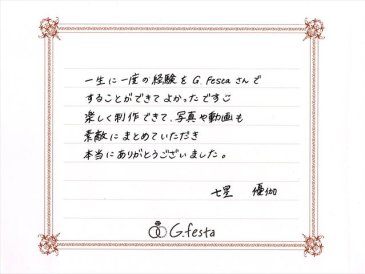 一生に一度の経験をG.festaさんで
することができてよかったです☺
楽しく制作できて、写真や動画も
素敵にまとめていただき
本当にありがとうございました。
七星 優伽
G.festa